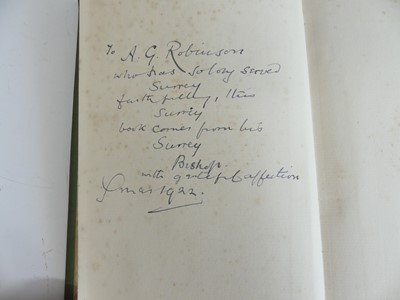 To A. G. Robinson
who has so long served
Surrey
faithfully, this
Surrey
book comes from his
Surrey
Bishop.
with grateful affection
Xmas 1922.